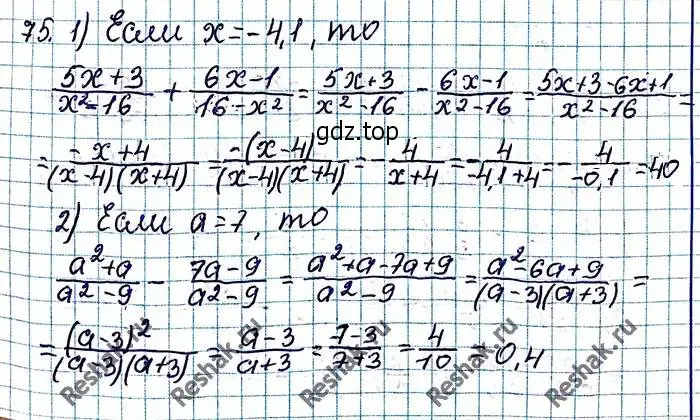 75. 1) Если x = -4,1, то
(5x+3)/(x²-16) + (6x-1)/(16-x²) = (5x+3)/(x²-16) - (6x-1)/(x²-16) = (5x+3-6x+1)/(x²-16) =
gdz.top
= (-x+4)/((x-4)(x+4)) = (-(x-4))/((x-4)(x+4)) = - 4/(x+4) = - 4/(-4,1+4) = - 4/(-0,1) = 40
2) Если a = 7, то
(a²+a)/(a²-9) - (7a-9)/(a²-9) = (a²+a-7a+9)/(a²-9) = (a²-6a+9)/((a-3)(a+3)) =
= (a-3)²/((a-3)(a+3)) = (a-3)/(a+3) = (7-3)/(7+3) = 4/10 = 0,4
Reshak.ru Reshak.ru Reshak.ru Reshak.ru Reshak.ru